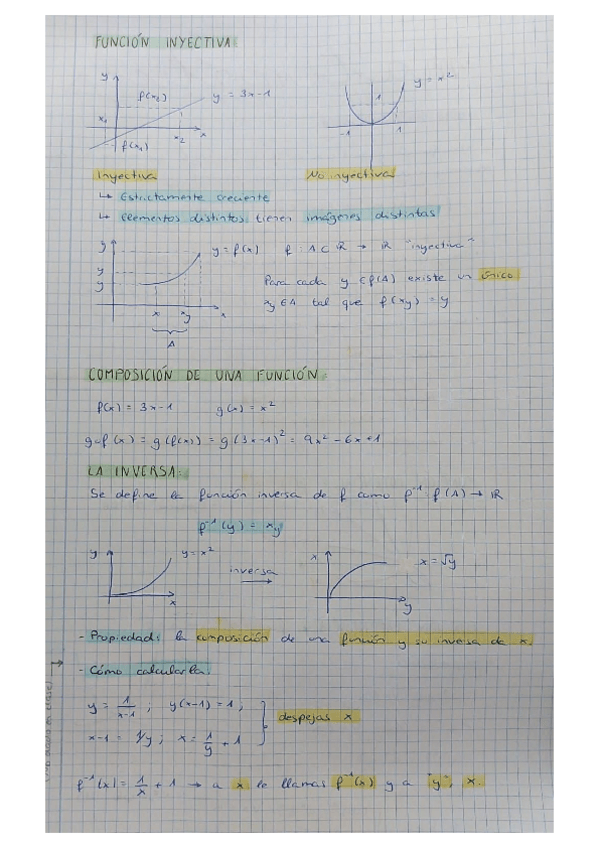 FUNCIÓN INYECTIVA
y f(x₂) y = 3x-1 y = x²
x₁ 1
x₂ x -1 1
f(x₁)
Inyectiva No inyectiva
↳ Estrictamente creciente
↳ elementos distintos tienen imágenes distintas
y y = f(x) f: A ⊂ ℝ → ℝ "inyectiva"
y Para cada y ∈ f(A) existe un único
y x_y ∈ A tal que f(x_y) = y
x x_y x
A
COMPOSICIÓN DE UNA FUNCIÓN
f(x) = 3x-1 g(x) = x²
g∘f(x) = g(f(x)) = g(3x-1)² = 9x² - 6x + 1
LA INVERSA:
Se define la función inversa de f como f⁻¹: f(A) → ℝ
f⁻¹(y) = x_y
y y = x² inversa → x x = √y
x y
- Propiedad: la composición de una función y su inversa da x.
→ - Cómo calcularla:
y = 1/(x-1) ; y(x-1) = 1 ;
x-1 = 1/y ; x = 1/y + 1 } despejas x
f⁻¹(x) = 1/x + 1 → a x le llamas f⁻¹(x) y a "y", x.